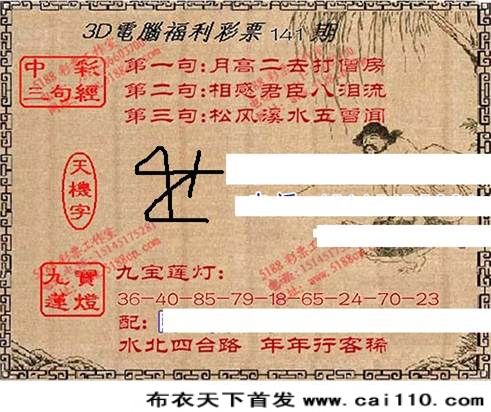 3D電腦福利彩票 141 期
中彩三句經
第一句:月高二去打僧房
第二句:相感君臣八泪流
第三句:松风溪水五雪闻
天機字
九寶蓮燈
九宝莲灯:
36-40-85-79-18-65-24-70-23
配:
水北四台路 年年行客稀
布衣天下首发 www.cai110.com